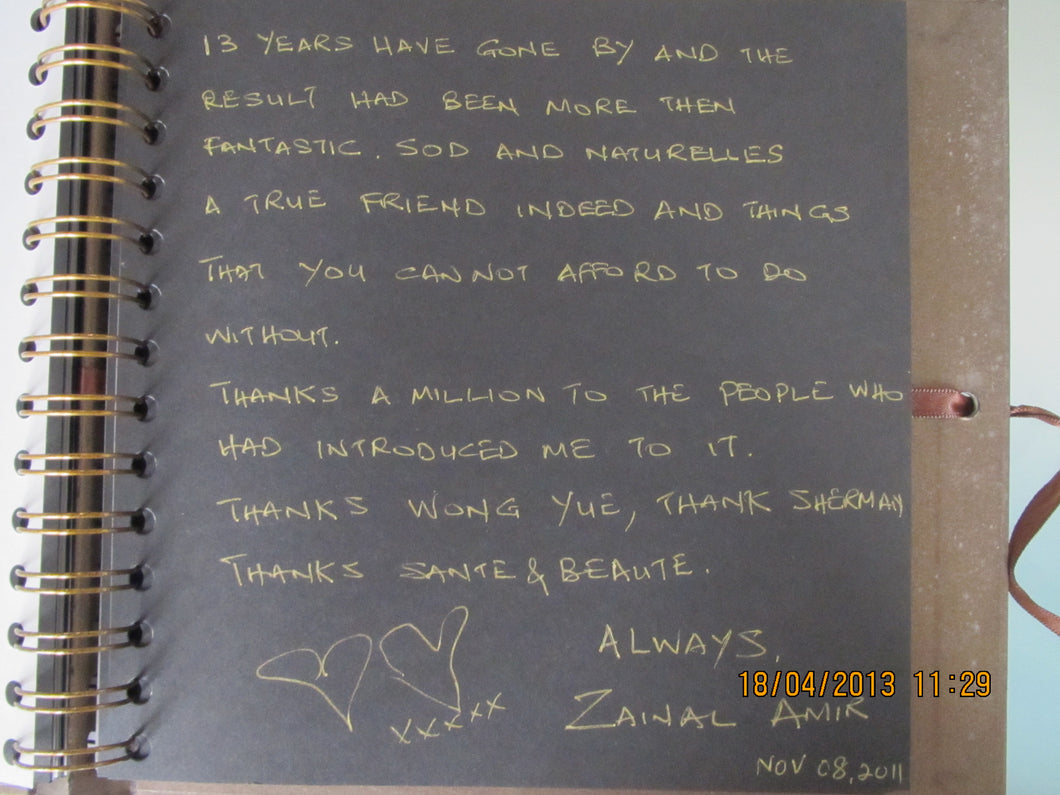 13 YEARS HAVE GONE BY AND THE
RESULT HAD BEEN MORE THEN
FANTASTIC. SOD AND NATURELLES
A TRUE FRIEND INDEED AND THINGS
THAT YOU CANNOT AFFORD TO DO
WITHOUT.
THANKS A MILLION TO THE PEOPLE WHO
HAD INTRODUCED ME TO IT.
THANKS WONG YUE, THANK SHERMAN
THANKS SANTE & BEAUTE.
ALWAYS,
XXXXX
ZAINAL AMIR
18/04/2013 11:29
NOV 08, 2011